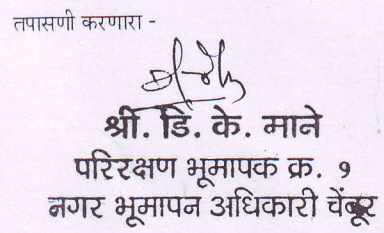 तपासणी करणारा -
श्री. डि. के. माने
परिरक्षण भूमापक क्र. १
नगर भूमापन अधिकारी चेंबूर